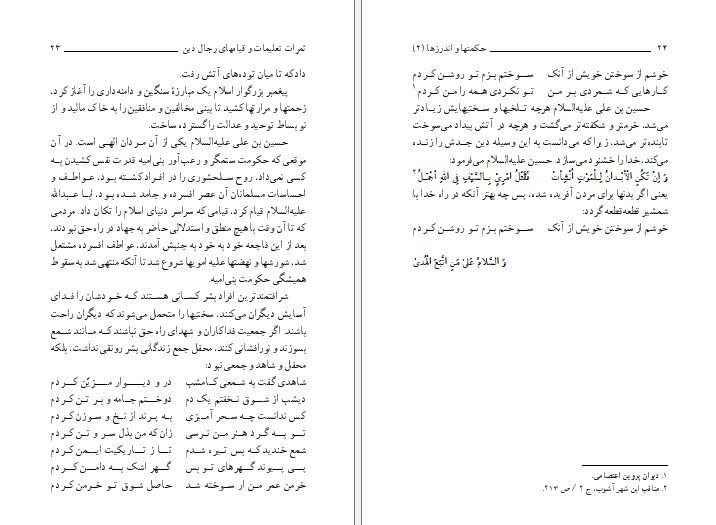 ثمرات تعلیمات و قیامهای رجال دین ۲۳
دادکه تا میان توده‌های آتش رفت.
پیغمبر بزرگوار اسلام یک مبارزهٔ سنگین و دامنه‌داری را آغاز کرد،
زحمتها و مرارتها کشید تا بینی مخالفین و منافقین را به خاک مالید و از
نو بساط توحید و عدالت را گسترده ساخت.
حسین بن علی علیه‌السلام یکی از آن مردان الهی است. در آن
موقعی که حکومت ستمگر و رعب‌آور بنی‌امیه قدرت نفس کشیدن به
کسی نمی‌داد، روح سلحشوری را در افراد کشته بود، عواطف و
احساسات مسلمانان آن عصر افسرده و جامد شده بود. ابا عبدالله
علیه‌السلام قیام کرد، قیامی که سراسر دنیای اسلام را تکان داد. مردمی
که تا آن وقت با هیچ منطق و استدلالی حاضر به جهاد در راه حق نبودند،
بعد از این فاجعه خود به خود به جنبش آمدند، عواطف افسرده مشتعل
شد، شورشها و نهضتها علیه امویها شروع شد تا آنکه منتهی شد به سقوط
همیشگی حکومت بنی‌امیه.
شرافتمندترین افراد بشر کسانی هستند که خودشان را فدای
آسایش دیگران می‌کنند، سختیها را متحمل می‌شوند که دیگران راحت
باشند. اگر جمعیت فداکاران و شهدای راه حق نباشند که مانند شمع
بسوزند و نورافشانی کنند، محفل جمع زندگانی بشر رونقی نداشت، بلکه
محفل و شاهد و جمعی نبود:
شاهدی گفت به شمعی کامشب در و دیوار مزیّن کردم
دیشب از شوق نخفتم یک دم دوختم جامه و بر تن کردم
کس ندانست چه سحر آمیزی به پرند از نخ و سوزن کردم
تو به گرد هنر من نرسی زان که من بذل سر و تن کردم
شمع خندید که بس تیره شدم تا ز تاریکیت ایمن کردم
پی پیوند گهرهای تو بس گهر اشک به دامن کردم
خرمن عمر من ار سوخته شد حاصل شوق تو خرمن کردم
۲۴ حکمتها و اندرزها (۲)
خوشم از سوختن خویش از آنک سوختم بزم تو روشن کردم
کارهایی که شمردی بر من تو نکردی همه را من کردم۱
حسین بن علی علیه‌السلام هرچه تلخیها و سختیهایش زیادتر
می‌شد، خرمتر و شکفته‌تر می‌گشت و هرچه در آتش بیداد می‌سوخت
تابنده‌تر می‌شد، زیرا که می‌دانست به این وسیله دین جدش را زنده
می‌کند، خدا را خشنود می‌سازد. حسین علیه‌السلام می‌فرمود:
وَ اِنْ تَکُنِ الْاَبْدانُ لِلْمَوْتِ اُنْشِئَتْ فَقَتْلُ امْرِئٍ بِالسَّیْفِ فِی اللهِ اَجْمَلُ۲
یعنی اگر بدنها برای مردن آفریده شده، پس چه بهتر آنکه در راه خدا با
شمشیر قطعه‌قطعه گردد:
خوشم از سوختن خویش از آنک سوختم بزم تو روشن کردم
وَ السَّلامُ عَلیٰ مَنِ اتَّبَعَ الْهُدیٰ
۱. دیوان پروین اعتصامی.
۲. مناقب ابن شهر آشوب، ج ۲ / ص ۲۱۳.